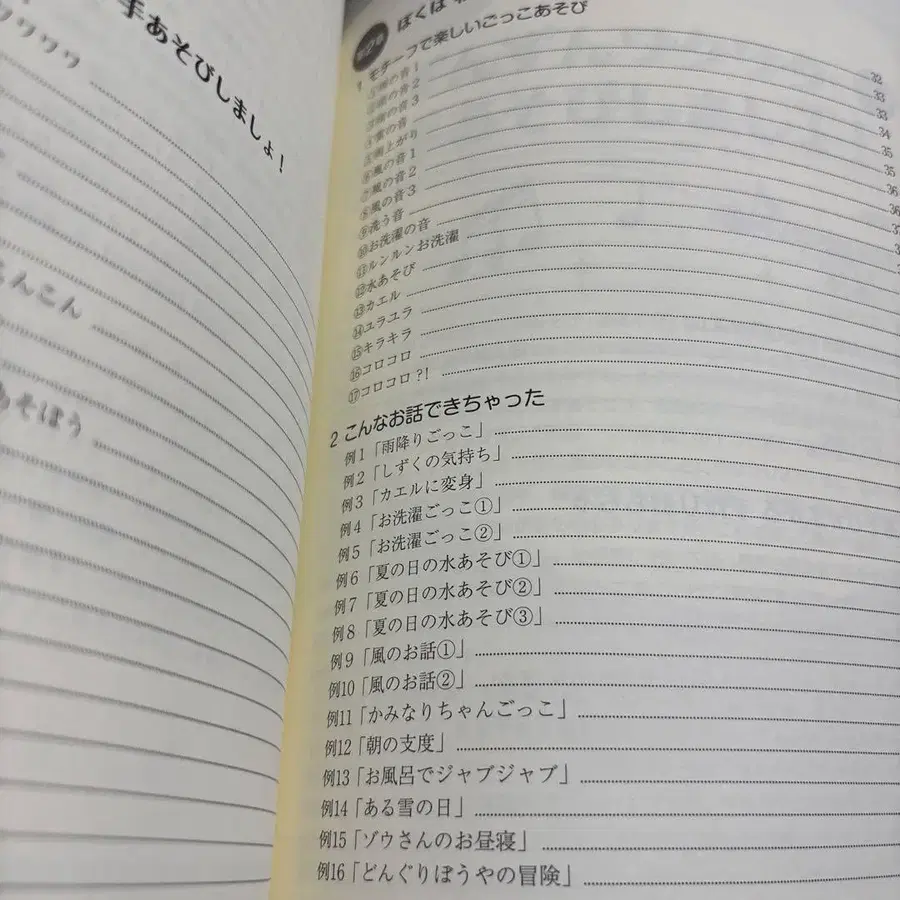 手あそびしましょ!
ワワワワ
こんこん
あそぼう
第2章
ぼくは
1 モチーフで楽しいごっこあそび
①雨の音1 32
②雨の音2 33
③雨の音3 33
④雷の音 34
⑤雨上がり 35
⑥風の音1 35
⑦風の音2 36
⑧風の音3 36
⑨洗う音
⑩お洗濯の音
⑪ルンルンお洗濯
⑫水あそび
⑬カエル
⑭ユラユラ
⑮キラキラ
⑯コロコロ
⑰コロコロ?!
2 こんなお話できちゃった
例1「雨降りごっこ」
例2「しずくの気持ち」
例3「カエルに変身」
例4「お洗濯ごっこ①」
例5「お洗濯ごっこ②」
例6「夏の日の水あそび①」
例7「夏の日の水あそび②」
例8「夏の日の水あそび③」
例9「風のお話①」
例10「風のお話②」
例11「かみなりちゃんごっこ」
例12「朝の支度」
例13「お風呂でジャブジャブ」
例14「ある雪の日」
例15「ゾウさんのお昼寝」
例16「どんぐりぼうやの冒険」